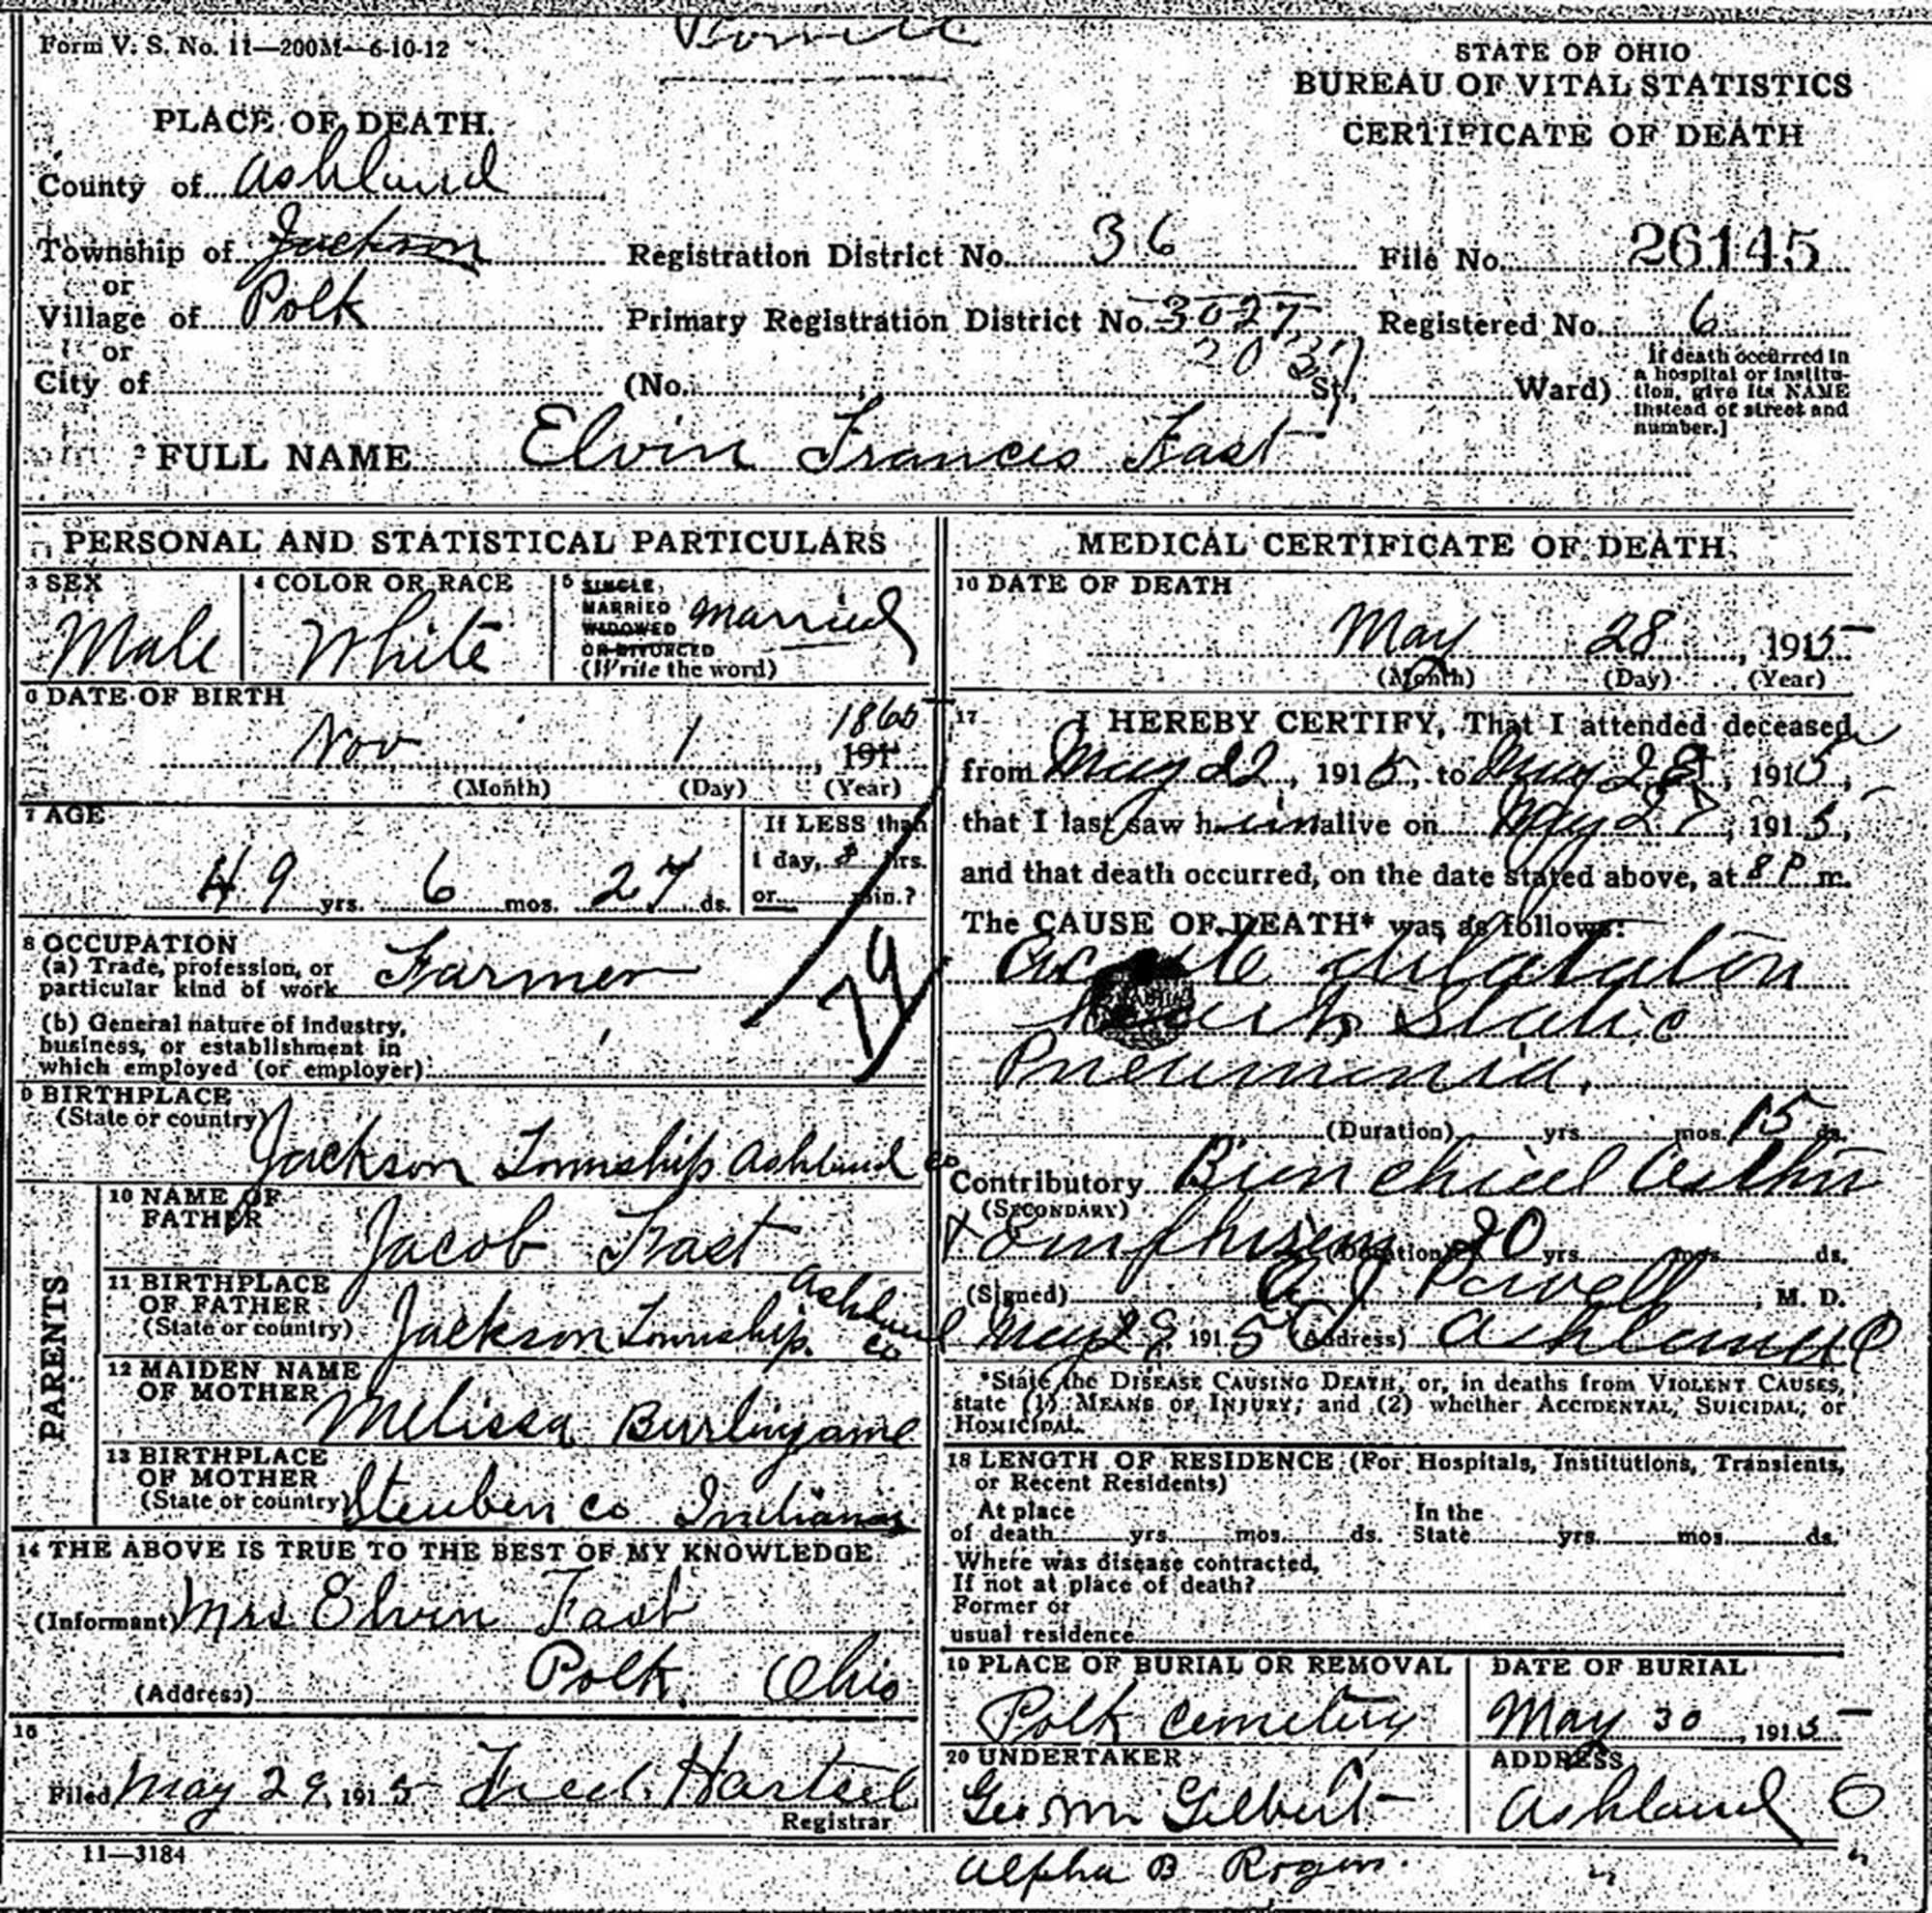 Form V. S. No. 11—200M—6-10-12
STATE OF OHIO
BUREAU OF VITAL STATISTICS
CERTIFICATE OF DEATH
PLACE OF DEATH.
County of Ashland
Township of Jackson Registration District No. 36 File No. 26145
or
Village of Polk Primary Registration District No. 3027 Registered No. 6
2037
or
City of (No. St., Ward)
If death occurred in
a hospital or institu-
tion, give its NAME
instead of street and
number.]
2 FULL NAME Elvin Frances Fast
PERSONAL AND STATISTICAL PARTICULARS
3 SEX
Male
4 COLOR OR RACE
White
5 SINGLE,
MARRIED
WIDOWED
OR DIVORCED
(Write the word)
Married
6 DATE OF BIRTH
Nov 1, 1865
191
(Month) (Day) (Year)
7 AGE
49 yrs. 6 mos. 27 ds.
If LESS than
1 day, hrs.
or min.?
8 OCCUPATION
(a) Trade, profession, or
particular kind of work Farmer
(b) General nature of industry,
business, or establishment in
which employed (or employer)
9 BIRTHPLACE
(State or country)
Jackson Township Ashland Co
PARENTS
10 NAME OF
FATHER
Jacob Fast
11 BIRTHPLACE
OF FATHER
(State or country)
Jackson Township. Ashland Co
12 MAIDEN NAME
OF MOTHER
Melissa Burlingame
13 BIRTHPLACE
OF MOTHER
(State or country)
Steuben Co Indiana
14 THE ABOVE IS TRUE TO THE BEST OF MY KNOWLEDGE
(Informant) Mrs Elvin Fast
(Address) Polk, Ohio
15
Filed May 29, 1915 Fred. Hartsel
Registrar
11—3184
MEDICAL CERTIFICATE OF DEATH
16 DATE OF DEATH
May 28, 1915
(Month) (Day) (Year)
17 I HEREBY CERTIFY, That I attended deceased
from May 22, 1915, to May 28, 1915,
that I last saw him alive on May 27, 1915,
and that death occurred, on the date stated above, at 8 P m.
The CAUSE OF DEATH* was as follows:
Acute dilatation
heart, Static
Pneumonia.
(Duration) yrs. mos. 15 ds.
Contributory Bronchial Asthma
(SECONDARY)
+ Emphisem (Duration) 20 yrs. mos. ds.
(Signed) A J Powell, M. D.
May 29, 1915 (Address) Ashland O
*State the DISEASE CAUSING DEATH, or, in deaths from VIOLENT CAUSES,
state (1) MEANS OF INJURY; and (2) whether ACCIDENTAL, SUICIDAL, or
HOMICIDAL.
18 LENGTH OF RESIDENCE (For Hospitals, Institutions, Transients,
or Recent Residents)
At place
of death yrs. mos. ds.
In the
State yrs. mos. ds.
Where was disease contracted,
If not at place of death?
Former or
usual residence
19 PLACE OF BURIAL OR REMOVAL
Polk Cemetery
DATE OF BURIAL
May 30, 1915
20 UNDERTAKER
Geo M Gilbert
ADDRESS
Ashland O
Alpha B Rogers " "